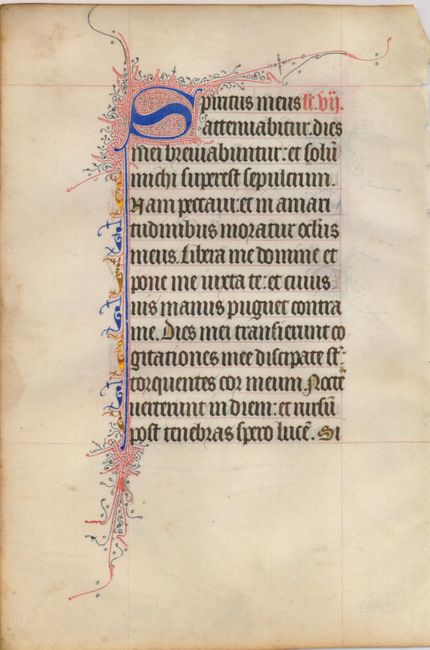 Spiritus meus lc̄. vij.
attenuabitur. dies
mei breviabuntur: et solū
michi superest sepulcrum.
Nam peccaui: et in amari
tudinibus moratur oclūs
meus. Libera me domine et
pone me iuxta te: et cuius
uis manus pugnet contra
me. Dies mei transierunt co
gitationes mee discipate st̄:
torquentes cor meum. Noctē
uerterunt in diem: et rursū
post tenebras spero lucē. Si